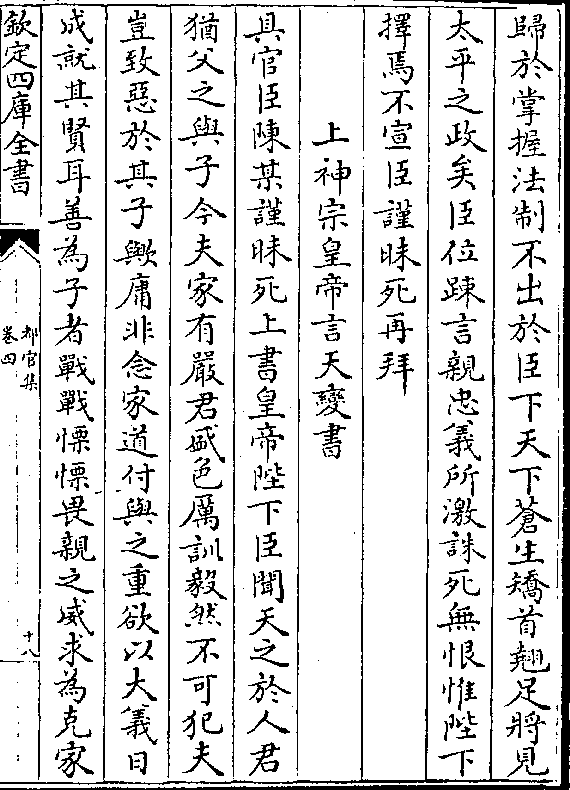 歸於掌握法制不出於臣下天下蒼生矯首翹足將見
太平之政矣臣位踈言親忠義所激誅死無恨惟陛下
擇焉不宣臣謹昧死再拜
上神宗皇帝言天變書
具官臣陳某謹昧死上書皇帝陛下臣聞天之於人君
猶父之與子今夫家有嚴君盛色厲訓毅然不可犯夫
豈致惡於其子歟庸非念家道付與之重欲以大義日
成就其賢耳善為子者戰戰慄慄畏親之威求為克家
欽定四庫全書
都官集
卷四
十八